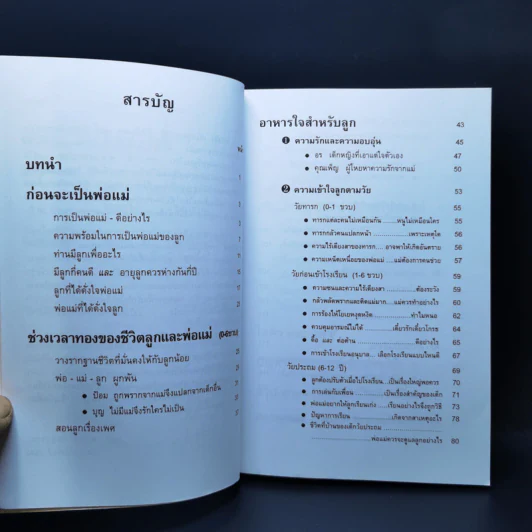 สารบัญ
บทนำ
ก่อนจะเป็นพ่อแม่
การเป็นพ่อแม่ - ดีอย่างไร
ความพร้อมในการเป็นพ่อแม่ของลูก
ท่านมีลูกเพื่ออะไร
มีลูกกี่คนดี และ อายุลูกควรห่างกันกี่ปี
ลูกที่ได้ดั่งใจพ่อแม่
พ่อแม่ที่ได้ดั่งใจลูก
ช่วงเวลาทองของชีวิตลูกและพ่อแม่ (0-6ขวบ)
วางรากฐานชีวิตที่มั่นคงให้กับลูกน้อย
พ่อ - แม่ - ลูก ผูกพัน
● ป้อม ถูกพรากจากแม่จึงแปลกจากเด็กอื่น
● บุญ ไม่มีแม่จึงรักใครไม่เป็น
สอนลูกเรื่องเพศ
อาหารใจสำหรับลูก 43
❶ ความรักและความอบอุ่น 45
● อร เด็กหญิงที่เอาแต่ใจตัวเอง 47
● คุณเพ็ญ ผู้โหยหาความรักจากแม่ 50
❷ ความเข้าใจลูกตามวัย 53
วัยทารก (0-1 ขวบ) 55
● ทารกแต่ละคนไม่เหมือนกัน......หนูไม่เหมือนใคร 55
● ทารกกลัวคนแปลกหน้า ......เพราะเหตุใด 56
● ความไร้เดียงสาของทารก... อาจพาให้เกิดอันตราย 56
● ความเหน็ดเหนื่อยของพ่อแม่ ...แม่ต้องการคนช่วย 57
วัยก่อนเข้าโรงเรียน (1-6 ขวบ) 59
● ความซนและความไร้เดียงสา ......ต้องระวัง 59
● กลัวพลัดพรากและติดแม่มาก......แม่ควรทำอย่างไร 60
● การร้องให้โยเยหงุดหงิด ......ทำไมหนอ 64
● ควบคุมอารมณ์ไม่ได้ ......เดี๋ยวรักเดี๋ยวโกรธ
● ดื้อ และ ต่อต้าน ......ดีอย่างไร
● การเข้าโรงเรียนอนุบาล... เลือกโรงเรียนแบบไหนดี
วัยประถม (6-12 ปี)
● ลูกต้องปรับตัวเมื่อไปโรงเรียน...เป็นเรื่องใหญ่พอควร 70
● การเล่นกับเพื่อน ......เป็นเรื่องสำคัญของเด็ก 71
● พ่อแม่อยากให้ลูกเรียนเก่ง......เรียนอย่างไรจึงถูกวิธี 73
● ปัญหาการเรียน ......เกิดจากสาเหตุอะไร 78
● ชีวิตที่บ้านของเด็กวัยประถม
......พ่อแม่ควรจะดูแลลูกอย่างไร 80